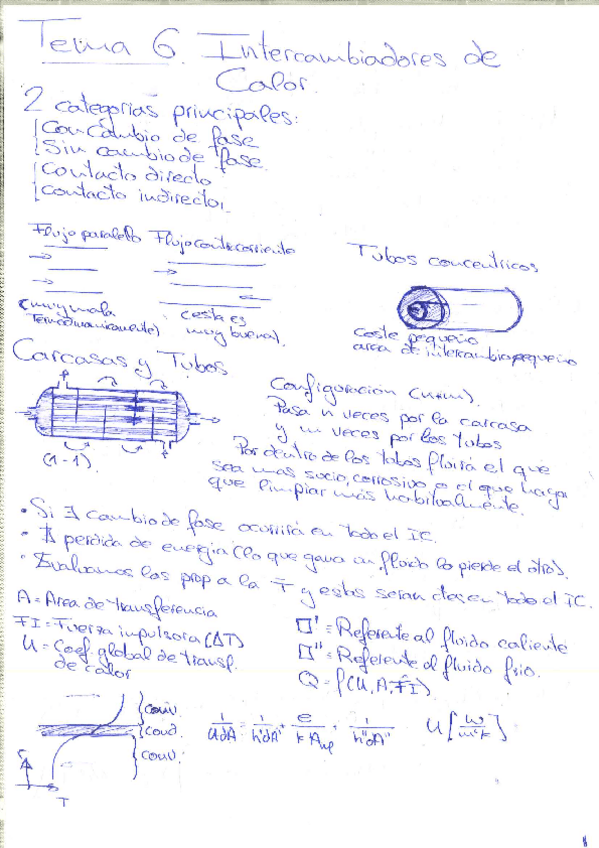 Tema 6. Intercambiadores de
Calor.
2 categorías principales:
Con cambio de fase
Sin cambio de fase.
Contacto directo
Contacto indirecto.
Flujo paralelo Flujo contracorriente
(muy mala
Termodinamicamente)
(esta es
muy buena).
Tubos concentricos
coste pequeño
area de intercambio pequeño
Carcasas y Tubos
(1-1).
Configuración (n+m).
Pasa n veces por la carcasa
y m veces por los tubos
Por dentro de los tubos fluirá el que
sea mas sucio, corrosivo o el que haya
que limpiar más habitualmente.
• Si ∃ cambio de fase ocurrirá en todo el IC.
• ∄ perdida de energia (lo que gana un fluido lo pierde el otro).
• Evaluamos las prop a la T̄ y estas seran ctes en todo el IC.
A = Area de transferencia
FI = Fuerza impulsora (ΔT)
U = Coef. global de transf.
de calor
□' = Referente al fluido caliente
□" = Referente al fluido frio.
Q = f(U, A, FI)
conv.
cond.
conv.
T
1/UdA = 1/h'dA' + e/k A + 1/h"dA"
U [w/m²k]